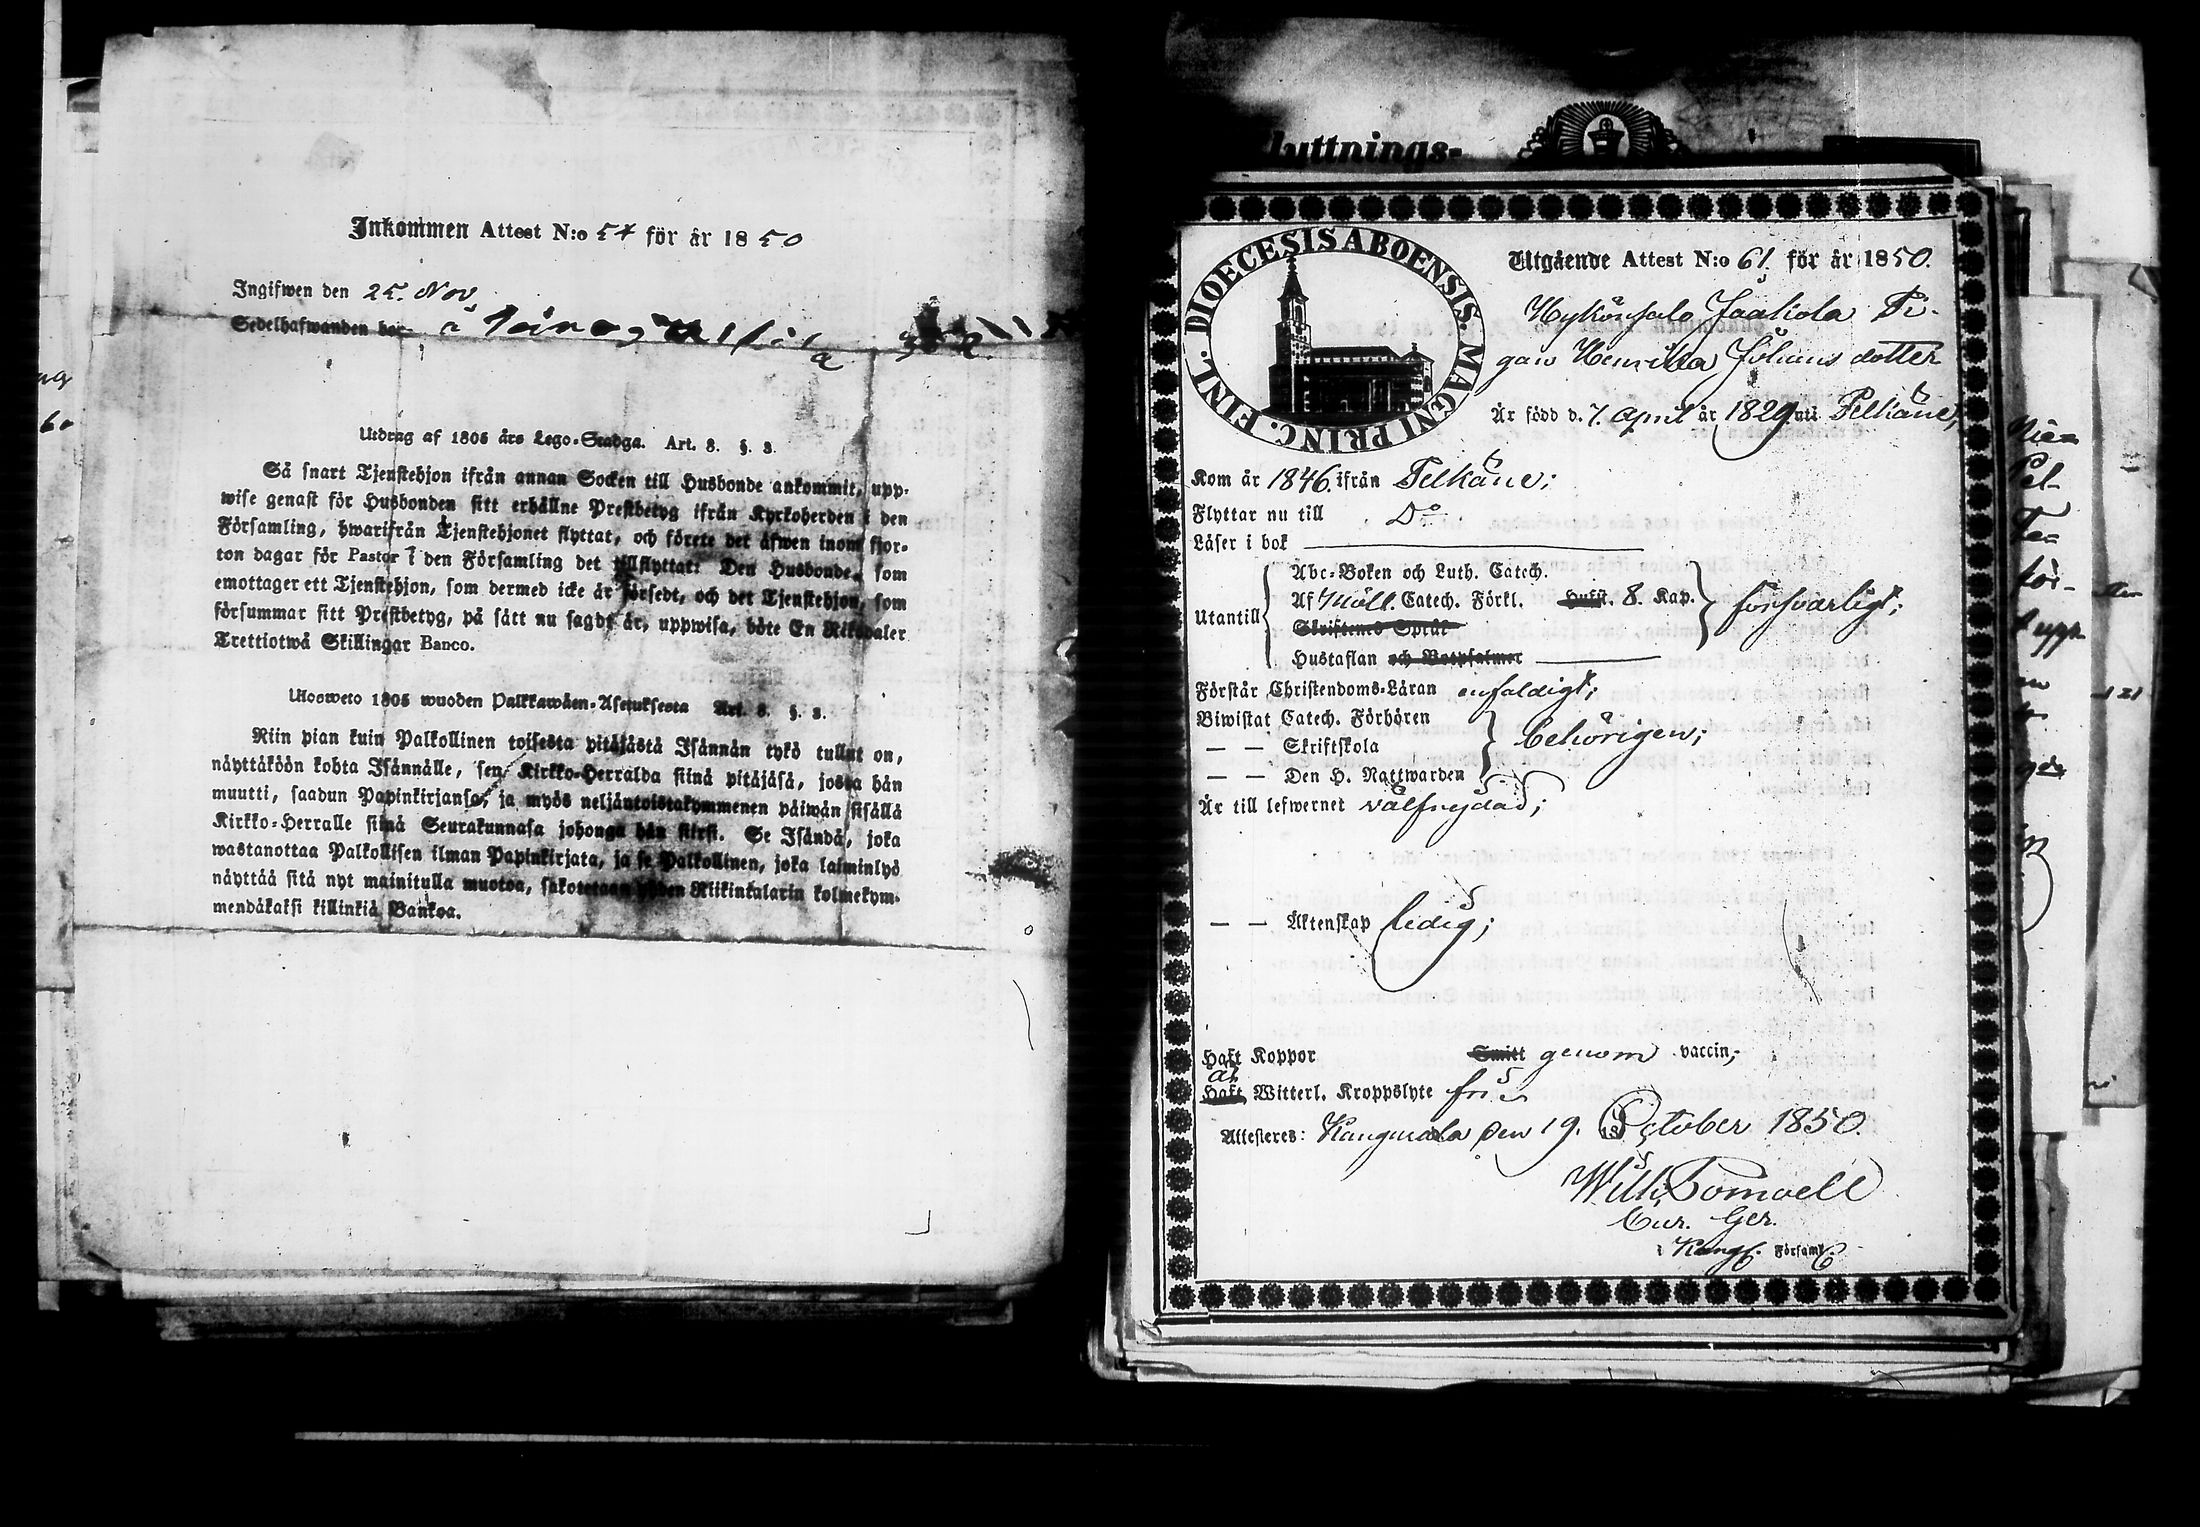 Inkommen Attest N:o 54 för år 1850
Ingifwen den 25. Nov.
Sedelhafwanden bor å
Utdrag af 1805 års Lego-Stadga. Art. 8. §. 3.
Så snart Tjenstehjon ifrån annan Socken till Husbonde ankommit, upp-
wise genast för Husbonden sitt erhållne Prestbetyg ifrån Kyrkoherden i den
Församling, hwarifrån Tjenstehjonet flyttat, och förete det äfwen inom fjor-
ton dagar för Pastor i den Församling det tillflyttat: Den Husbonde, som
emottager ett Tjenstehjon, som dermed icke är försedt, och det Tjenstehjon, som
försummar sitt Prestbetyg, på sätt nu sagdt är, uppwisa, böte En Riksdaler
Trettiotwå Skillingar Banco.
Ulosweto 1805 wuoden Palkkawäen-Asetuksesta Art. 8. §. 3.
Niin pian kuin Palkollinen toisesta pitäjästä Isännän tykö tullut on,
näyttäköön kohta Isännälle, sen Kirkko-Herralda siinä pitäjäsä, josta hän
muutti, saadun Papinkirjansa, ja myös neljäntoistakymmenen päiwän sisällä
Kirkko-Herralle siinä Seurakunnasa johonga hän siirsi. Se Isändä, joka
wastanottaa Palkollisen ilman Papinkirjata, ja se Palkollinen, joka laiminlyö
näyttää sitä nyt mainitulla muotoa, sakotetaan yhden Riikintalarin kolmekym-
mendäkaksi killinkiä Bankoa.
luttnings-
DIOECESIS ABOENSIS. MAGNI PRINC. FINL.
Utgående Attest N:o 61. för år 1850.
Jaakola Pi-
gan Henrika Johans dotter
Är född d. 7. April år 1829. uti Pelkäne;
Kom år 1846. ifrån Pelkäne;
Flyttar nu till Do
Läser i bok
Utantill
Abc-Boken och Luth. Catech.
Af Möll. Catech. Förkl. Hufst. 8. Kap. försvarligt;
Skriftenes Språk
Hustaflan och Botpsalmer
Förstår Christendoms-Läran enfaldigt;
Biwistat Catech. Förhören
— — Skriftskola behörigen;
— — Den H. Nattwarden
Är till lefwernet välfrejdad;
— — Äktenskap ledig;
Haft Koppor Smitt genom vaccin;
är
Haft Witterl. Kroppslyte fri
Attesteres: Kangasala den 19. October 1850.
Wilh.
Cur. Ger.
i Kang. Församl.